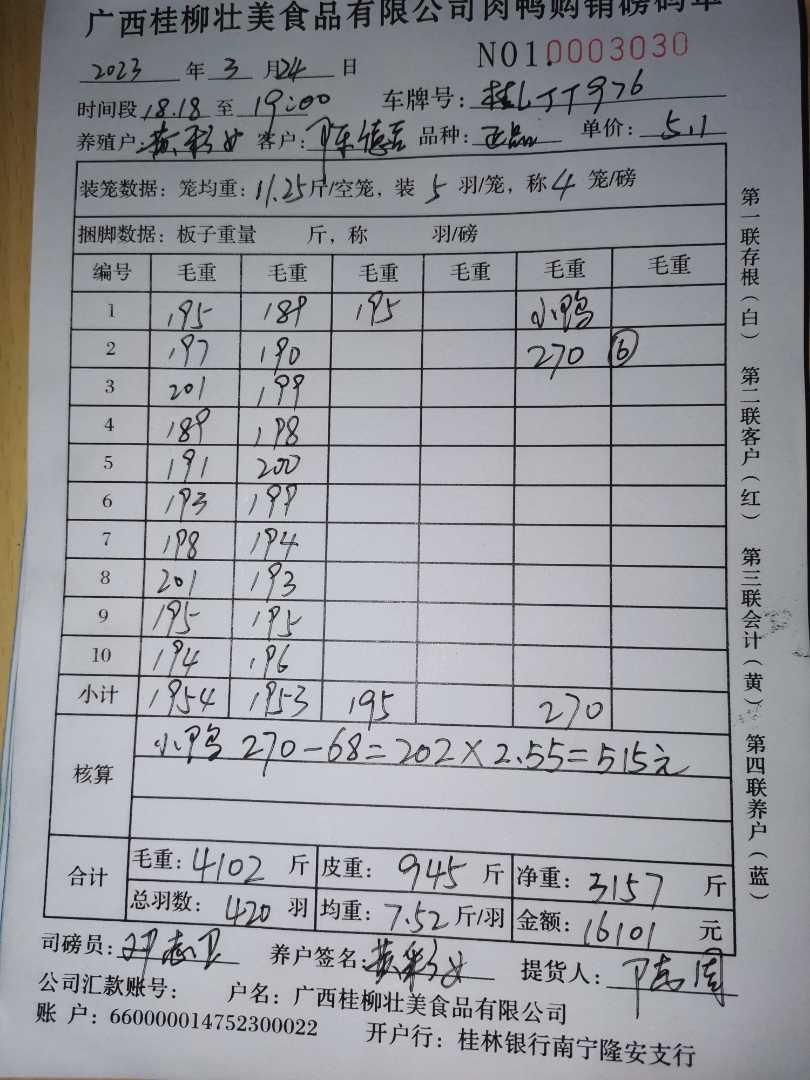 广西桂柳壮美食品有限公司肉鸭购销磅码单
NO1.0003030
2023 年 3 月 24 日
时间段 18.18 至 19:00 车牌号: 桂LJT976
养殖户: 黄彩女 客户: 陈德 品种: 正品 单价: 5.1
装笼数据: 笼均重: 11.25 斤/空笼, 装 5 羽/笼, 称 4 笼/磅
捆脚数据: 板子重量 斤, 称 羽/磅
编号 毛重 毛重 毛重 毛重 毛重 毛重
1 195 189 195 小鸭
2 197 190 270 ⑥
3 201 199
4 189 198
5 191 200
6 193 199
7 198 194
8 201 193
9 195 195
10 194 196
小计 1954 1953 195 270
核算 小鸭 270-68=202×2.55=515元
合计 毛重: 4102 斤 皮重: 945 斤 净重: 3157 斤
总羽数: 420 羽 均重: 7.52 斤/羽 金额: 16101 元
司磅员: 邓志卫 养户签名: 黄彩女 提货人:
公司汇款账号: 户名: 广西桂柳壮美食品有限公司
账 户: 660000014752300022 开户行: 桂林银行南宁隆安支行
第一联存根(白) 第二联客户(红) 第三联会计(黄) 第四联养户(蓝)